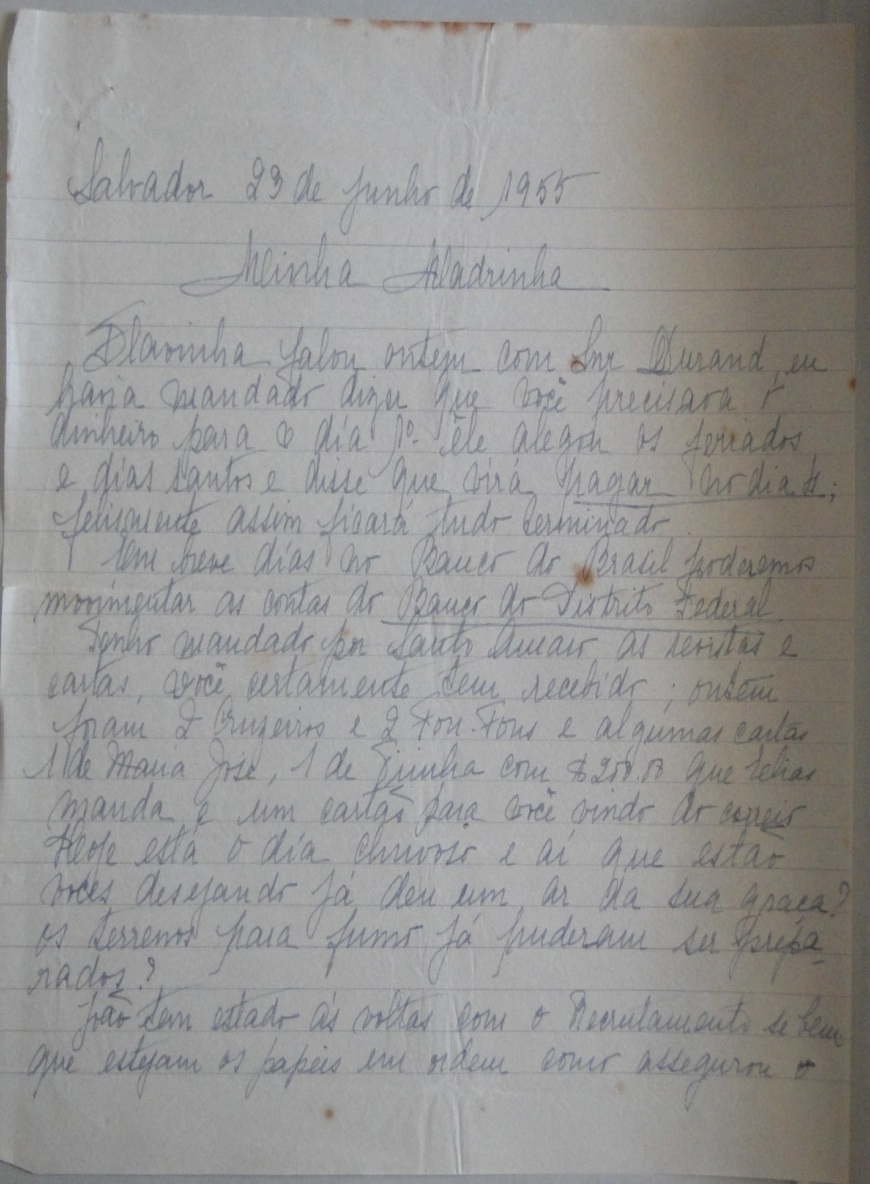 Salvador 23 de junho de 1955
Minha Madrinha
Flavinha falou ontem com Snr Durand, eu
havia mandado dizer que você precisava o
dinheiro para o dia 1º. êle alegou os feriados
e dias santos e disse que virá pagar no dia
felismente assim ficará tudo terminado.
breve dias no Banco do Brasil poderemos
movimentar as contas do Banco do Distrito Federal.
Tenho mandado por Santo Amaro as revistas e
cartas, você certamente tem recebido; ontem
foram 2 Cruzeiros e 2 Fon-Fons e algumas cartas
1 de Maria José, 1 de com que Elias
manda, e um cartão para você vindo do correio
Hoje está o dia chuvoso e aí que estão
voces desejando já deu um ar da sua graça?
os terrenos para fumo já puderam ser prepa-
rados?
João tem estado ás voltas com o Recrutamento se bem
que estejam os papeis em ordem como assegurou o